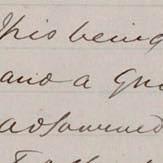 This being
and a Qu
adjourned